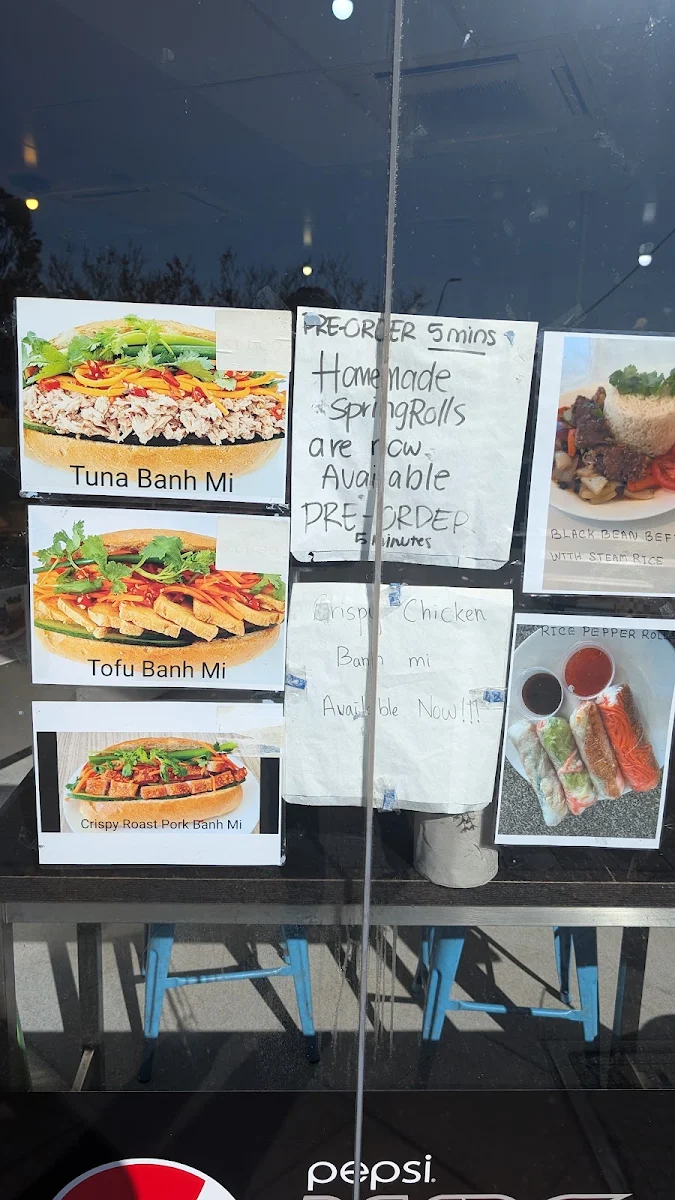 Tuna Banh Mi
Tofu Banh Mi
Crispy Roast Pork Banh Mi
PRE-ORDER 5 mins
Homemade
SpringRolls
are now
Available
PRE-ORDER
5 minutes
Crispy Chicken
Banh mi
Available Now!!!
BLACK BEAN BEF
WITH STEAM RICE
RICE PEPPER ROLL
pepsi